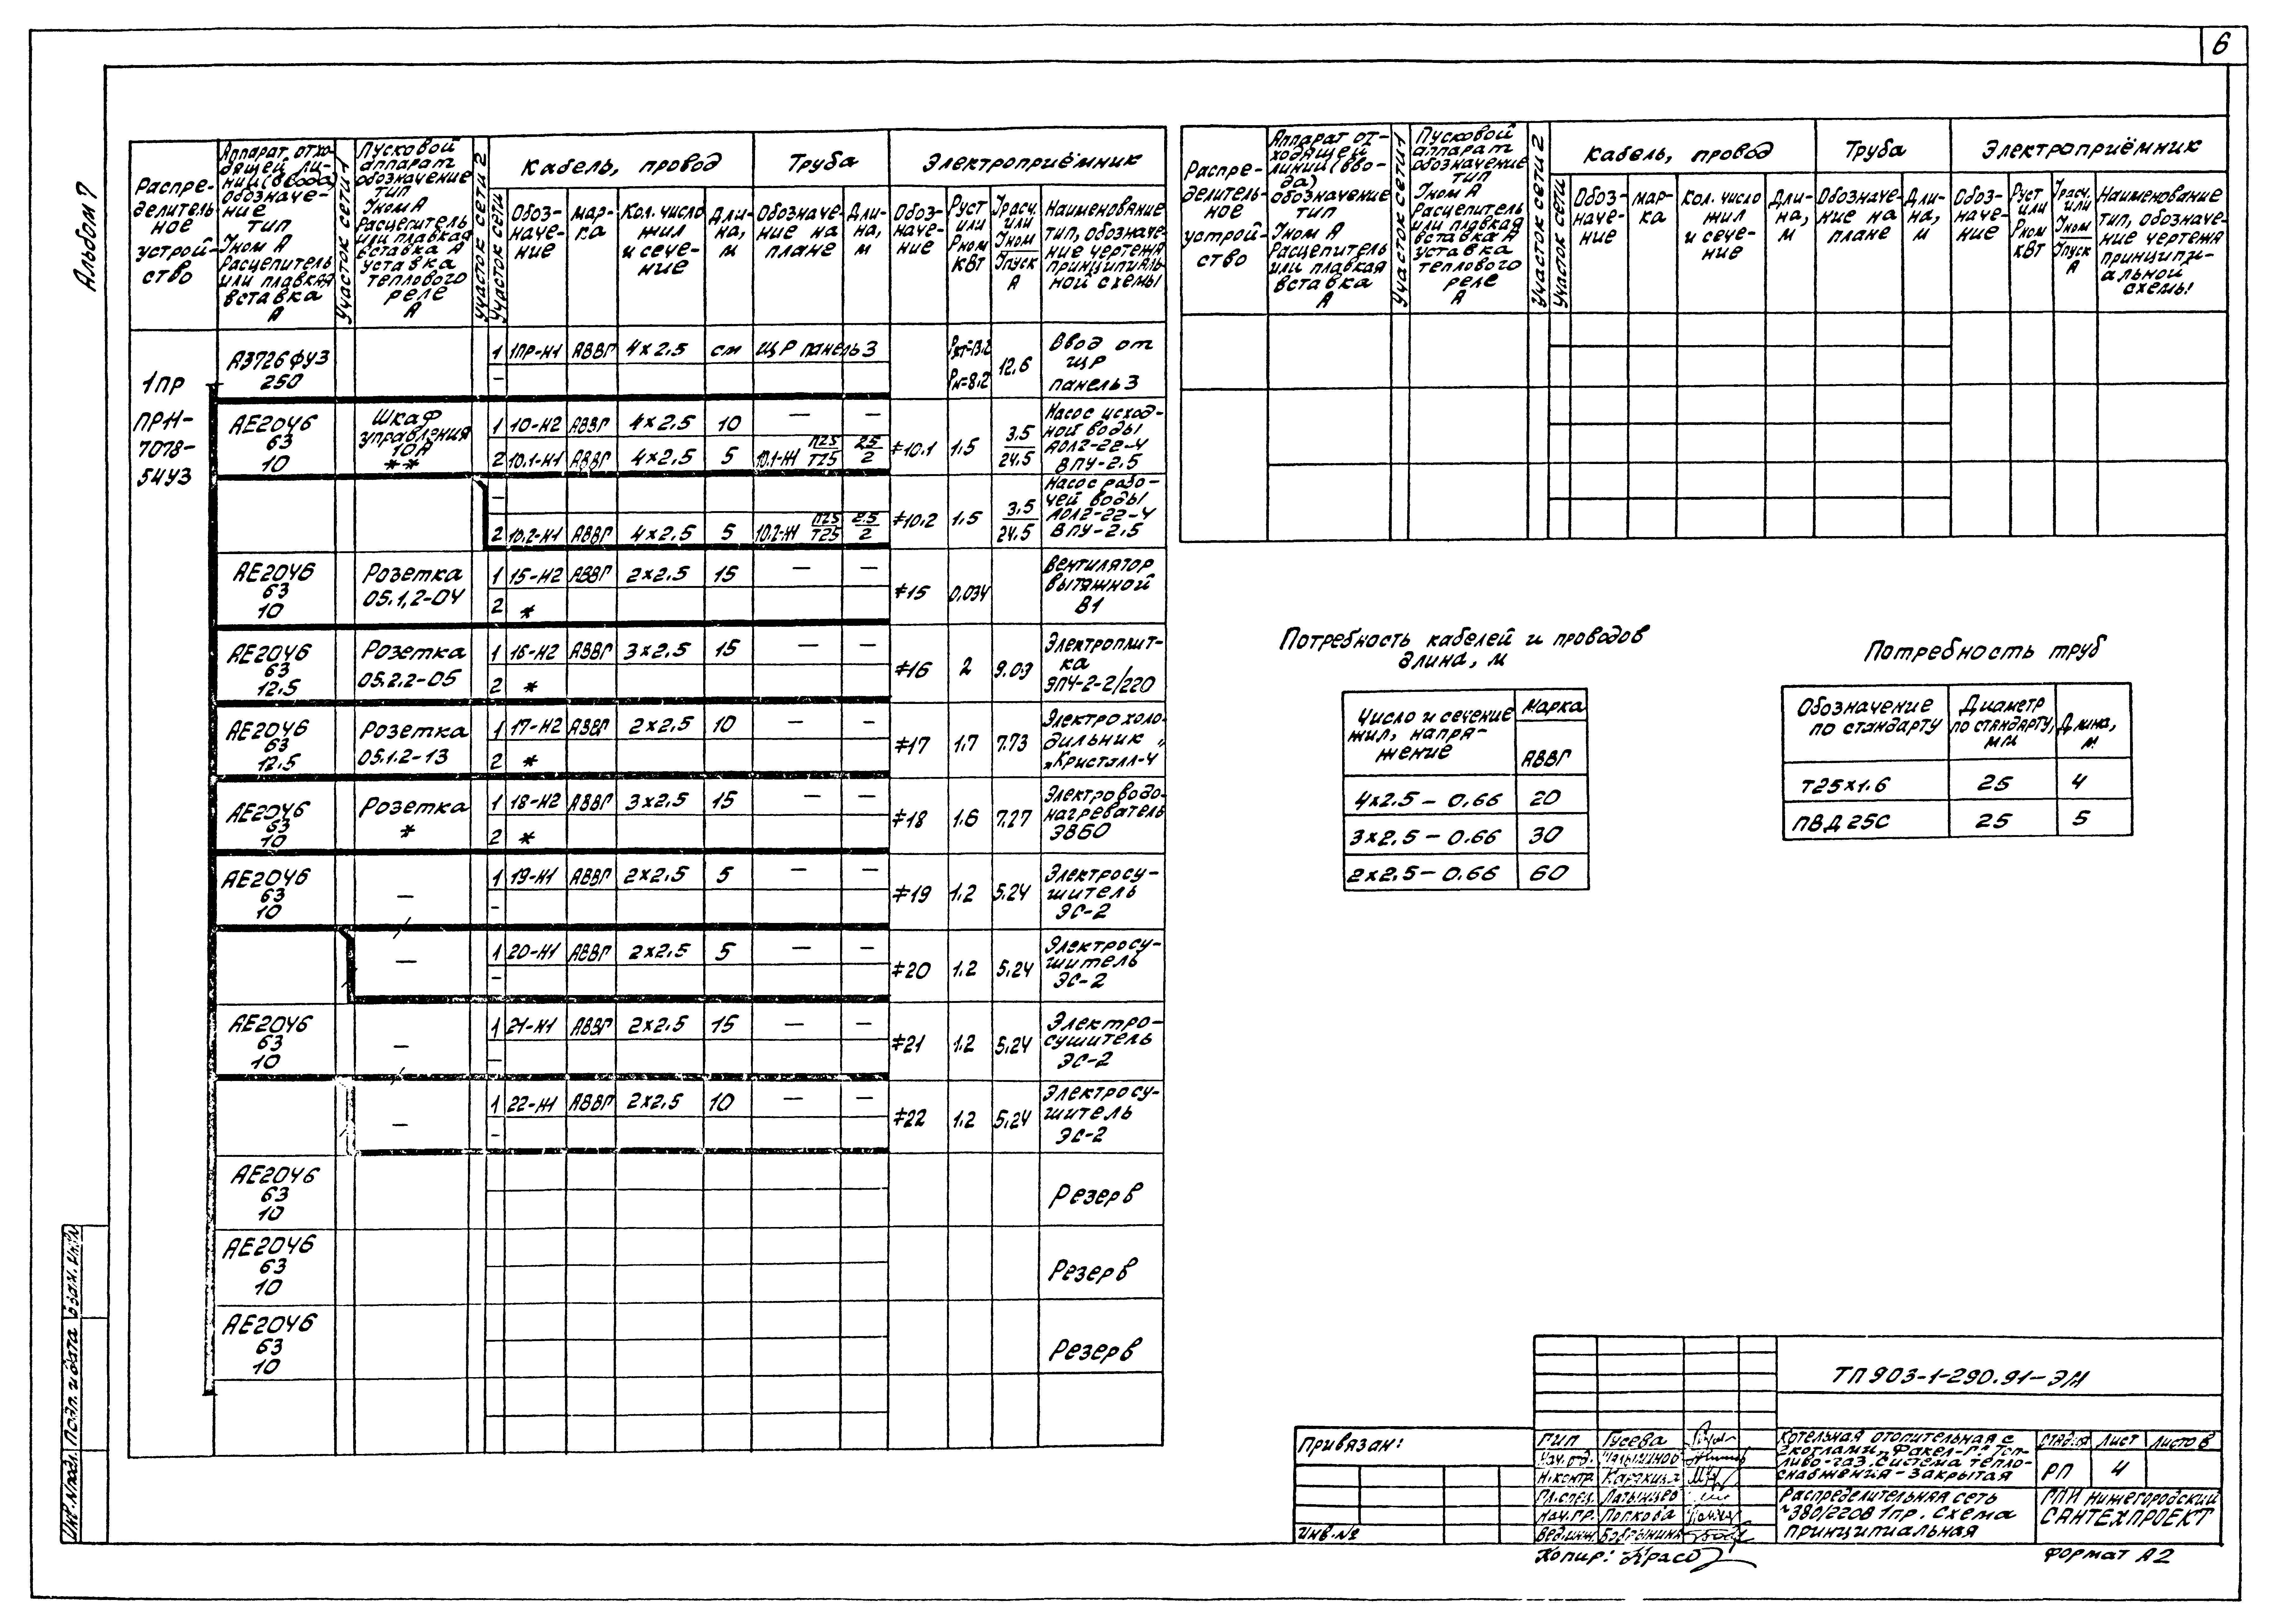 6
Альбом 7
Распределительное устройство
Аппарат отходящей линии (ввода) обозначение тип Iном А Расцепитель или плавкая вставка А
Участок сети 1
Пусковой аппарат обозначение тип Iном А Расцепитель или плавкая вставка А уставка теплового реле А
Участок сети 2
Участок сети
Кабель, провод
Труба
Электроприёмник
Обозначение
марка
Кол. число жил и сечение
Длина, м
Обозначение на плане
Длина, м
Обозначение
Руст или Рном кВт
Iрасч. или Iном Iпуск А
Наименование тип, обозначение чертежа принципиальной схемы
1ПР
ПР11-
7078-
54У3
А3726ФУ3 250
1 1ПР-Н1 АВВГ 4×2,5 см ЩР панель 3
–
Руст=13,2 Рн=8,2 12,6 Ввод от ЩР панель 3
АЕ2046 63 10
Шкаф управления 10А **
1 10-Н2 АВВГ 4×2,5 10 — —
2 10.1-Н1 АВВГ 4×2,5 5 10.1-Н1 П25/Т25 2.5/2
≠10.1 1,5 3,5/24,5 Насос исходной воды АОЛ2-22-4 ВПУ-2,5
–
2 10.2-Н1 АВВГ 4×2,5 5 10.2-Н1 П25/Т25 2.5/2
≠10.2 1,5 3,5/24,5 Насос рабочей воды АОЛ2-22-4 ВПУ-2,5
АЕ2046 63 10
Розетка 05.1,2-04
1 15-Н2 АВВГ 2×2,5 15 — —
2 *
≠15 0,034 Вентилятор вытяжной В1
АЕ2046 63 12,5
Розетка 05.2.2-05
1 16-Н2 АВВГ 3×2,5 15 — —
2 *
≠16 2 9,09 Электроплитка ЭПЧ-2-2/220
АЕ2046 63 12,5
Розетка 05.1.2-13
1 17-Н2 АВВГ 2×2,5 10 — —
2 *
≠17 1,7 7,73 Электрохолодильник „Кристалл-4"
АЕ2046 63 10
Розетка *
1 18-Н2 АВВГ 3×2,5 15 — —
2 *
≠18 1.6 7,27 Электроводонагреватель ЭВ60
АЕ2046 63 10
—
1 19-Н1 АВВГ 2×2,5 5 — —
–
≠19 1.2 5.24 Электросушитель ЭС-2
—
1 20-Н1 АВВГ 2×2,5 5 — —
–
≠20 1.2 5,24 Электросушитель ЭС-2
АЕ2046 63 10
—
1 21-Н1 АВВГ 2×2,5 15 — —
–
≠21 1.2 5,24 Электросушитель ЭС-2
—
1 22-Н1 АВВГ 2×2,5 10 — —
–
≠22 1.2 5,24 Электросушитель ЭС-2
АЕ2046 63 10 Резерв
АЕ2046 63 10 Резерв
АЕ2046 63 10 Резерв
Распределительное устройство
Аппарат отходящей линии (ввода) обозначение тип Iном А Расцепитель или плавкая вставка А
Участок сети 1
Пусковой аппарат обозначение тип Iном А Расцепитель или плавкая вставка А уставка теплового реле А
Участок сети 2
Участок сети
Кабель, провод
Труба
Электроприёмник
Обозначение
марка
Кол. число жил и сечение
Длина, м
Обозначение на плане
Длина, м
Обозначение
Руст или Рном кВт
Iрасч. или Iном Iпуск А
Наименование тип, обозначение чертежа принципиальной схемы
Потребность кабелей и проводов
длина, м
Число и сечение жил, напряжение
Марка
АВВГ
4×2.5 – 0,66 20
3×2,5 – 0.66 30
2×2.5 – 0.66 60
Потребность труб
Обозначение по стандарту
Диаметр по стандарту, мм
Длина, м
Т25×1.6 25 4
ПВД 25С 25 5
ТП 903-1-290.91-ЭМ
Привязан:
Инв.№
ГИП Гусева
Нач.отд.
Н.контр.
Гл.спец. Латынцев
Нач.гр. Попкова
Вед.инж.
Котельная отопительная с
2 котлами „Факел-Г". Топ-
ливо-газ. Система тепло-
снабжения-закрытая
Стадия Лист Листов
РП 4
Распределительная сеть
~380/220В 1пр. Схема
принципиальная
ГПИ Нижегородский
САНТЕХПРОЕКТ
Копир:
Формат А2
Инв.№подл. Подп. и дата Взам.инв.№